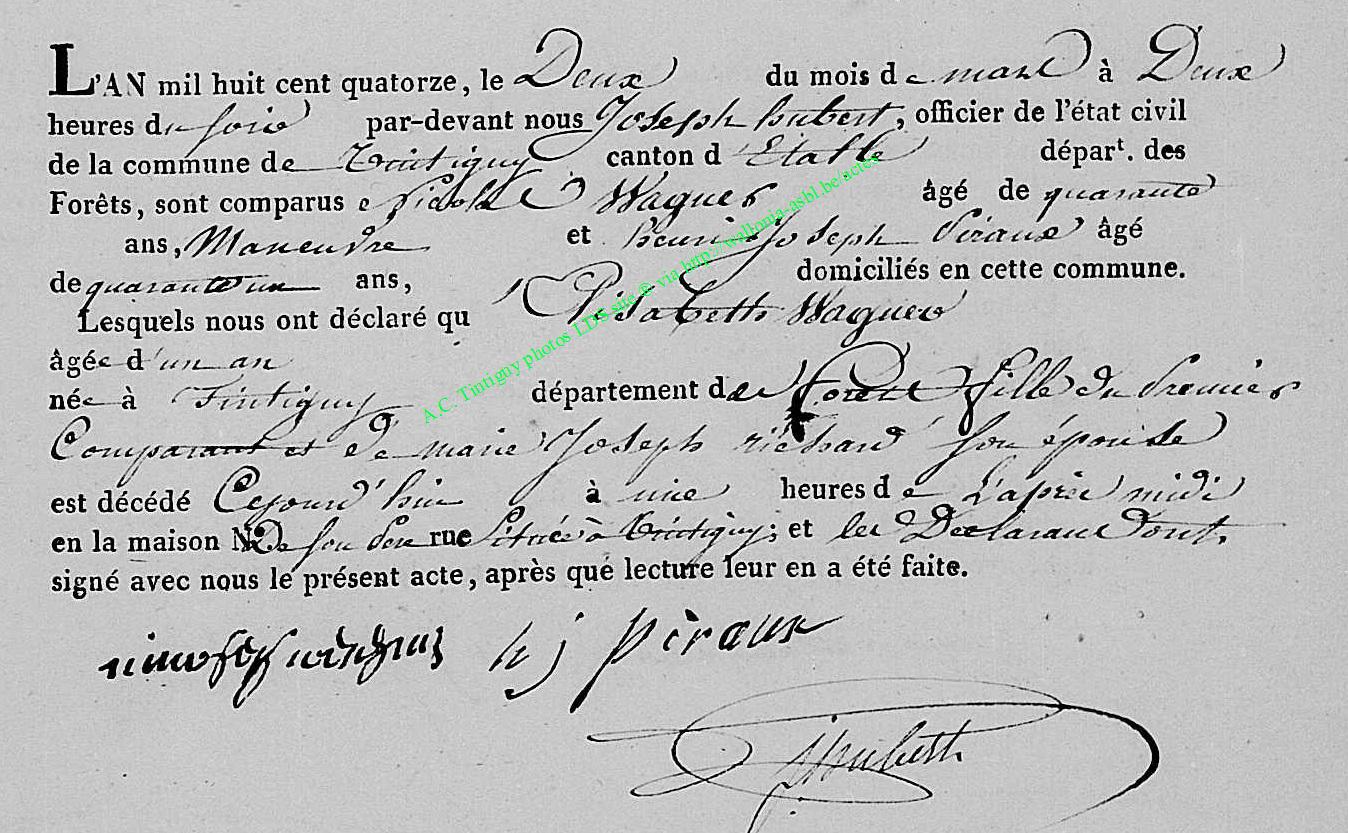 L'AN mil huit cent quatorze, le Deux du mois de mars à Deux
heures du soir par-devant nous Joseph hubert, officier de l'état civil
de la commune de Tintigny canton d'Etalle départ. des
Forêts, sont comparus Nicolas Wagner âgé de quarante
ans, Maneuvre et henri Joseph Piraux âgé
de quarante un ans, domiciliés en cette commune.
Lesquels nous ont déclaré qu Elisabeth Wagner
âgée d'un an
née à Tintigny département de Forest fille du premier
Comparant et de marie Joseph richard son épouse
est décédé Cejourd'hui à une heures de L'après midi
en la maison N de son père rue située à tintigny; et les Déclarant ont
signé avec nous le présent acte, après que lecture leur en a été faite.
h j piraux
J hubert
A.C. Tintigny photos LDS site © via http://wallonia-asbl.be/actes